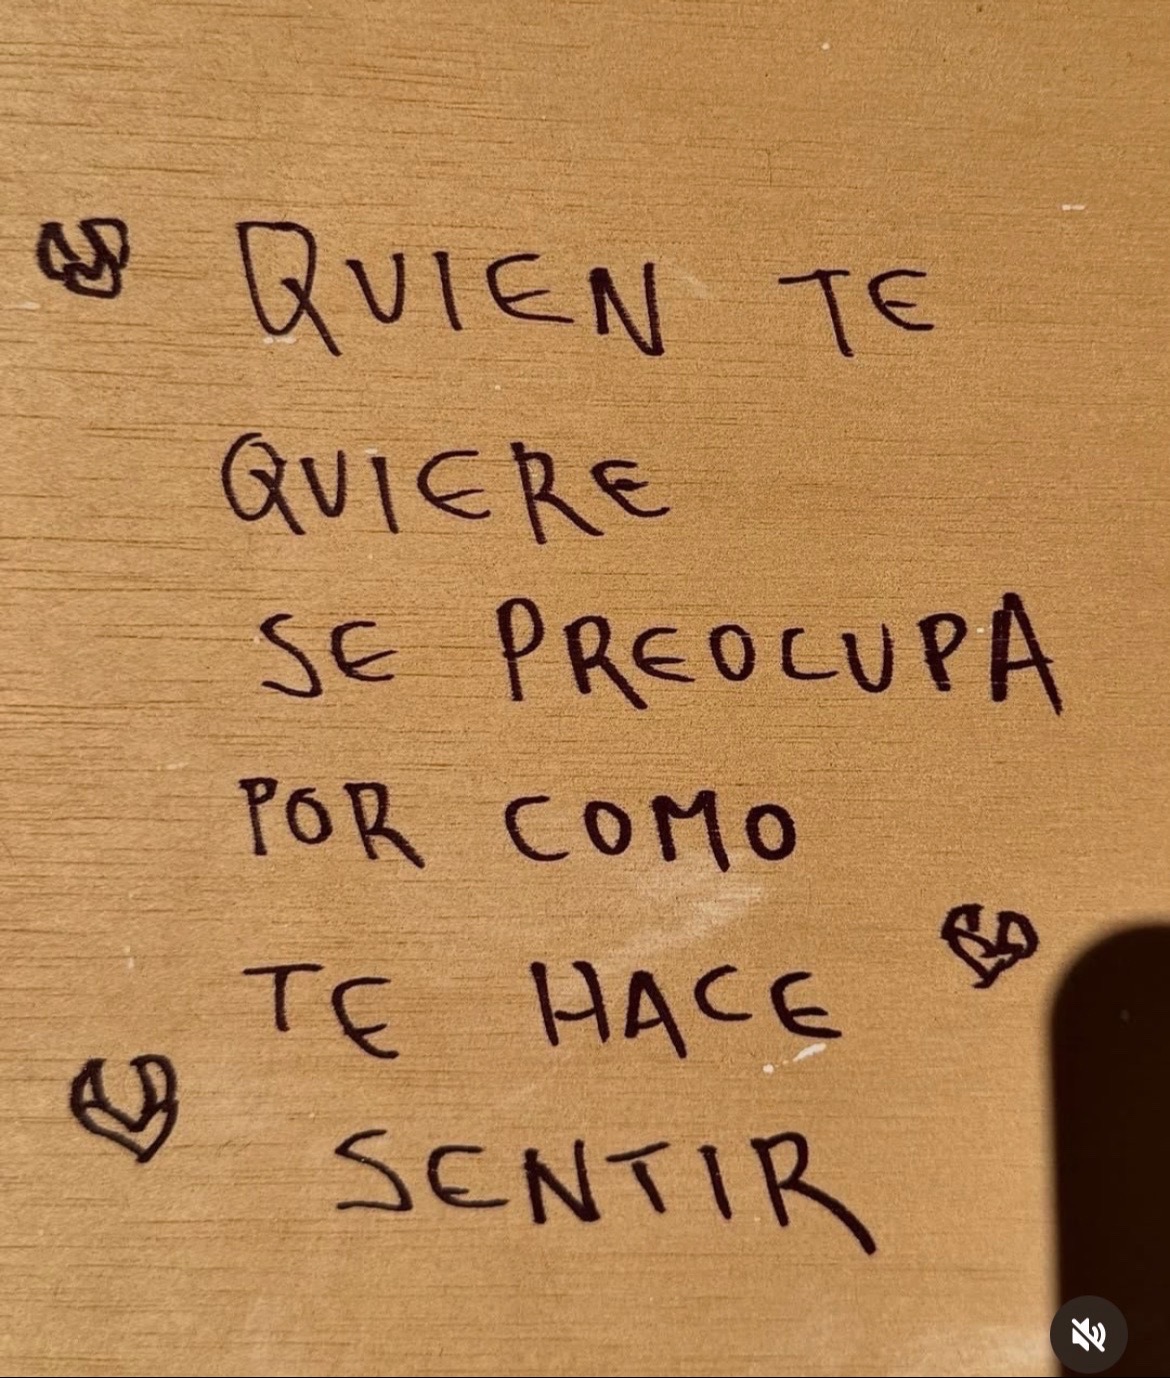 QUIEN TE
QUIERE
SE PREOCUPA
POR COMO
TE HACE
SENTIR